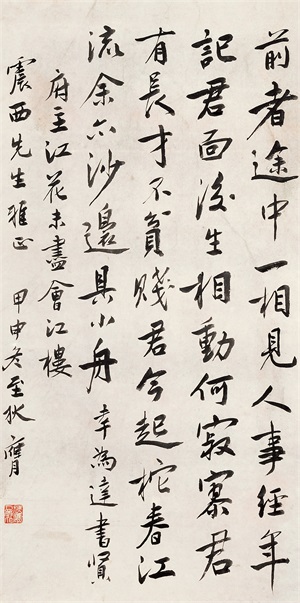 前者途中一相見人事經年
記君面後生相動何寂寥君
有長才不貧賤君今起柁春江
流余亦沙邊具小舟幸為達書賢
府主江花未盡會江樓
震西先生雅正 甲申冬至狄膺